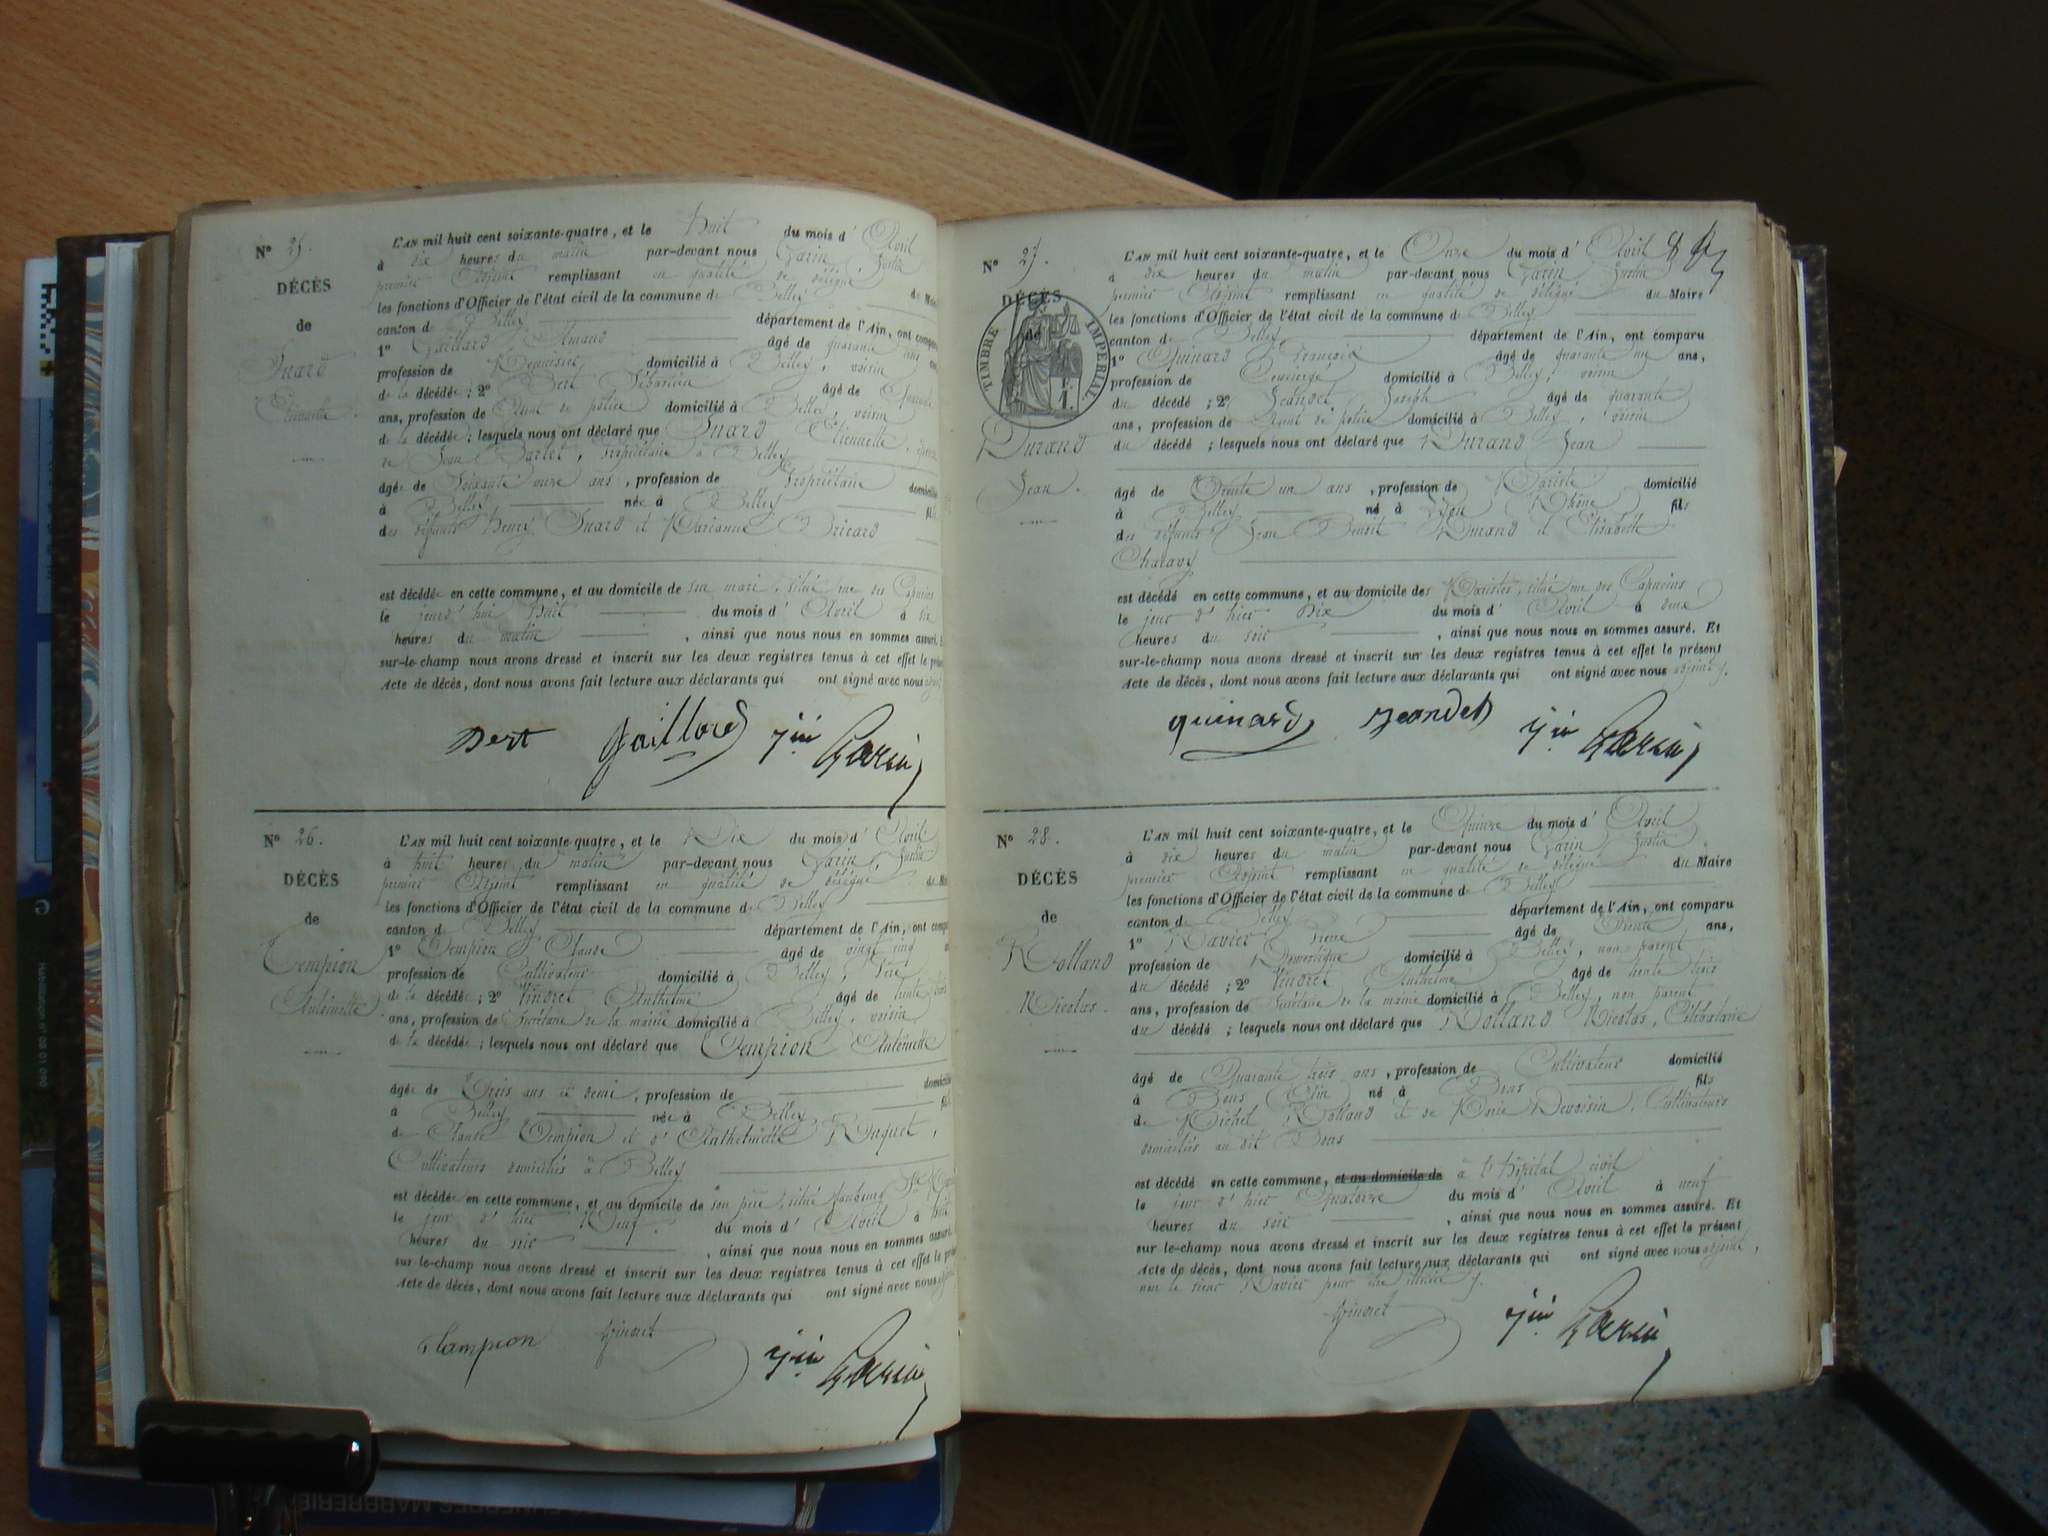 N° 25.
DÉCÈS
de
Juard
Etiennette.
L'AN mil huit cent soixante-quatre, et le huit du mois d'Avril
à dix heures du matin par-devant nous Garin, Justin
premier Adjoint remplissant en qualité de délégué du
les fonctions d'Officier de l'état civil de la commune de Belley
canton de Belley département de l'Ain, ont
1° Gaillard Amand âgé de quarante ans
profession de Menuisier domicilié à Belley, voisin
de la décédée ; 2° Bert Sébastien âgé de
ans, profession de Agent de police domicilié à Belley, voisin
de la décédée ; lesquels nous ont déclaré que Juard Etiennette,
de Jean Barlet, propriétaire à Belley
âgée de Soixante onze ans, profession de Propriétaire
à Belley née à Belley
des défunts Henry Juard et Marianne Bricard
est décédée en cette commune, et au domicile de son mari, situé rue des Capucins
le jourd'hui huit du mois d'Avril à six
heures du matin, ainsi que nous nous en sommes assuré.
sur-le-champ nous avons dressé et inscrit sur les deux registres tenus à cet effet le
Acte de décès, dont nous avons fait lecture aux déclarants qui ont signé avec nous
Bert Gaillard Jin Garin
N° 26.
DÉCÈS
de
Tempion
Antoinette.
L'AN mil huit cent soixante-quatre, et le Dix du mois d'Avril
à huit heures du matin par-devant nous Garin, Justin
premier Adjoint remplissant en qualité de délégué du
les fonctions d'Officier de l'état civil de la commune de Belley
canton de Belley département de l'Ain, ont
1° Tempion Claude âgé de vingt cinq
profession de Cultivateur domicilié à Belley, Père
de la décédée ; 2° Vindret Anthelme âgé de trente trois
ans, profession de Secrétaire de la mairie domicilié à Belley, voisin
de la décédée ; lesquels nous ont déclaré que Tempion Antoinette
âgée de Trois ans et demi, profession de
à Belley née à Belley
de Claude Tempion et d'Anthelmette Muguet,
Cultivateurs domiciliés à Belley
est décédée en cette commune, et au domicile de son père, situé faubourg St
le jour d'hier Neuf du mois d'Avril à
heures du soir, ainsi que nous nous en sommes assuré.
sur-le-champ nous avons dressé et inscrit sur les deux registres tenus à cet effet le
Acte de décès, dont nous avons fait lecture aux déclarants qui ont signé avec nous
Tampion Vindret Jin Garin
N° 27.
DÉCÈS
de
TIMBRE IMPERIAL
1 F.
Durand
Jean.
L'AN mil huit cent soixante-quatre, et le Onze du mois d'Avril
à dix heures du matin par-devant nous Garin, Justin
premier Adjoint remplissant en qualité de délégué du Maire
les fonctions d'Officier de l'état civil de la commune de Belley
canton de Belley département de l'Ain, ont comparu
1° Quinard François âgé de quarante un ans,
profession de Concierge domicilié à Belley, voisin
du décédé ; 2° Jeandet Joseph âgé de quarante
ans, profession de Agent de police domicilié à Belley, voisin
du décédé ; lesquels nous ont déclaré que Durand Jean
âgé de Trente un ans, profession de Mariste domicilié
à Belley né à Lyon Rhône fils
des défunts Jean Benoît Durand et Elisabeth
Charavy
est décédé en cette commune, et au domicile des Maristes, situé rue des Capucins
le jour d'hier Dix du mois d'Avril à deux
heures du soir, ainsi que nous nous en sommes assuré. Et
sur-le-champ nous avons dressé et inscrit sur les deux registres tenus à cet effet le présent
Acte de décès, dont nous avons fait lecture aux déclarants qui ont signé avec nous adjoint.
Quinard Jeandet Jin Garin
N° 28.
DÉCÈS
de
Rolland
Nicolas.
L'AN mil huit cent soixante-quatre, et le Quinze du mois d'Avril
à dix heures du matin par-devant nous Garin, Justin
premier Adjoint remplissant en qualité de délégué du Maire
les fonctions d'Officier de l'état civil de la commune de Belley
canton de Belley département de l'Ain, ont comparu
1° Ravier Pierre âgé de Trente ans,
profession de Domestique domicilié à Belley, non parent
du décédé ; 2° Vindret Anthelme âgé de trente trois
ans, profession de Secrétaire de la mairie domicilié à Belley, non parent
du décédé ; lesquels nous ont déclaré que Rolland Nicolas, Célibataire
âgé de Quarante trois ans, profession de Cultivateur domicilié
à Bons Ain né à Bons fils
de Michel Rolland et de Marie Devoisin, Cultivateurs
domiciliés au dit Bons
est décédé en cette commune, et au domicile de à l'hôpital civil
le jour d'hier Quatorze du mois d'Avril à neuf
heures du soir, ainsi que nous nous en sommes assuré. Et
sur le-champ nous avons dressé et inscrit sur les deux registres tenus à cet effet le présent
Acte de décès, dont nous avons fait lecture aux déclarants qui ont signé avec nous adjoint,
non le sieur Ravier pour être illétré.
Vindret Jin Garin